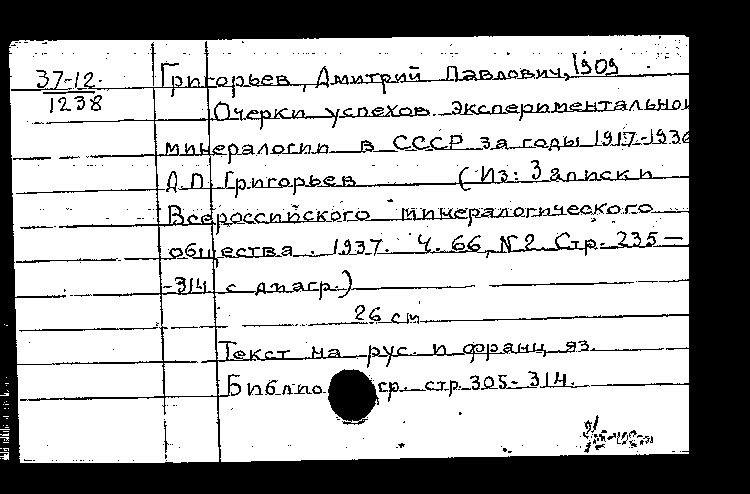 37-12.
1238
Григорьев, Дмитрий Павлович, 1909
Очерки успехов экспериментально
минералогии в СССР за годы 1917-193
Д.П. Григорьев (Из: Записки
Всероссийского минералогического
общества. 1937. Ч. 66, N2. Стр. 235 —
-314 с диагр.)
26 см
Текст на рус. и франц яз.
Библио гр. стр 305-314.